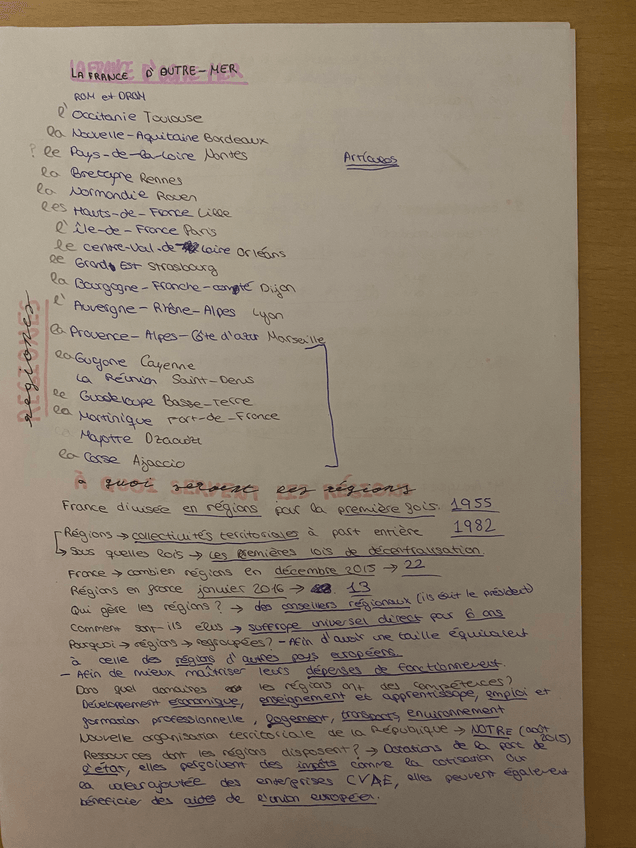 LA FRANCE D'OUTRE-MER
ROM et DROM
l'Occitanie Toulouse
la Nouvelle-Aquitaine Bordeaux
? le Pays-de-la-Loire Nantes
Artículos
la Bretagne Rennes
la Normandie Rouen
les Hauts-de-France Lille
l'Île-de-France Paris
le Centre-Val-de Loire Orléans
le Grand Est Strasbourg
la Bourgogne-Franche-comté Dijon
l'Auvergne-Rhône-Alpes Lyon
la Provence-Alpes-Côte d'azur Marseille
regiones
REGIONES
la Guyane Cayenne
La Réunion Saint-Denis
le Guadeloupe Basse-terre
la Martinique Fort-de-France
Mayotte Dzaoudzi
la Corse Ajaccio
à quoi servent les régions
France divisée en régions par la première fois: 1955
Régions → collectivités territoriales à part entière 1982
→ Sous quelles lois → les premières lois de décentralisation.
France → combien régions en décembre 2015 → 22
Régions en france janvier 2016 → 13
Qui gère les régions? → des conseillers régionaux (ils élit le président)
Comment sont-ils élus → suffrage universel direct par 6 ans
Pourquoi → régions → regroupées? - Afin d'avoir une taille équivalent
à celle des régions d'autres pays européens.
- Afin de mieux maîtriser leurs dépenses de fonctionnement.
Dans quel domaines les régions ont des compétences?
Développement économique, enseignement et apprentissage, emploi et
formation professionnelle, logement, transports, environnement
Nouvelle organisation territoriale de la République → NOTRE (août 2015)
Ressources dont les régions disposent? → Dotations de la part de
l'état, elles perçoivent des impôts comme la cotisation sur
la valeur ajoutée des enterprises CVAE, elles peuvent également
bénéficier des aides de l'union européen.